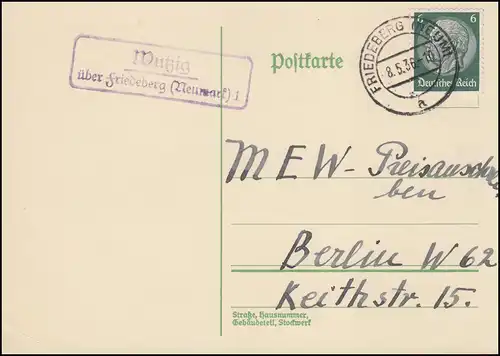 Mutzig
über Friedeberg (Neumark) 1
Postkarte
FRIEDEBERG (NEUM)
8.5.36
a
6 6
Deutsches Reich
MEW-Preisausschr
ben
Berlin W 62
Keithstr. 15.
Straße, Hausnummer,
Gebäudeteil, Stockwerk